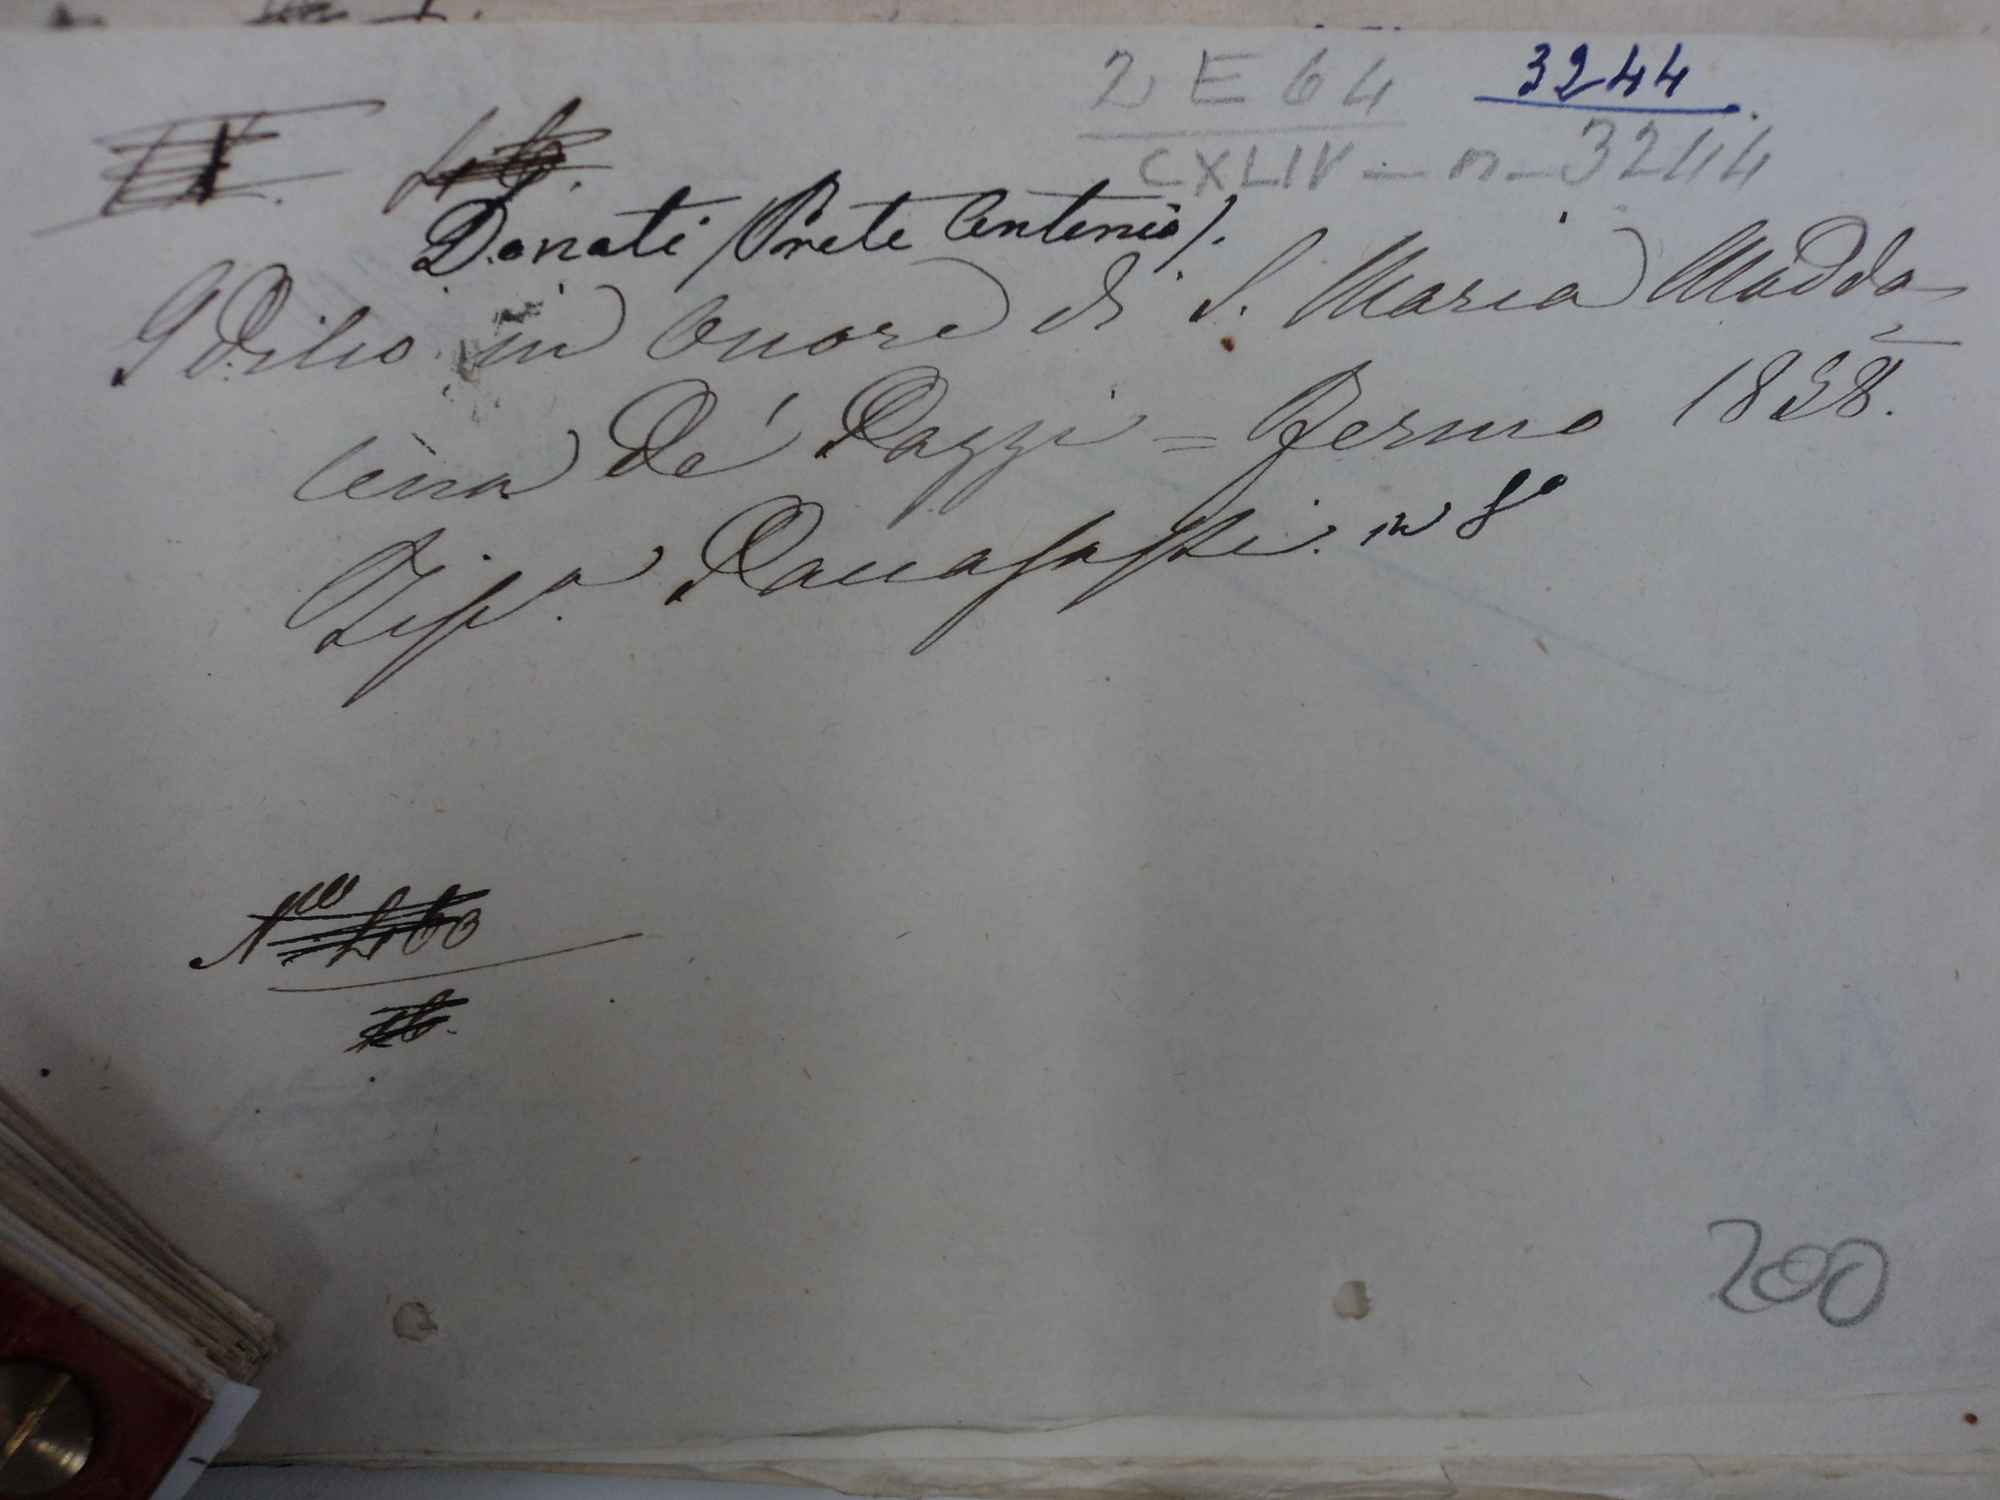 2 E 64
3244
CXLIV - n - 3244
Donati (Prete Antonio).
Idilio in Onore di S. Maria Madda-
lena De' Pazzi = Fermo 1838.
Tip.a Paccasassi. in 8°
200